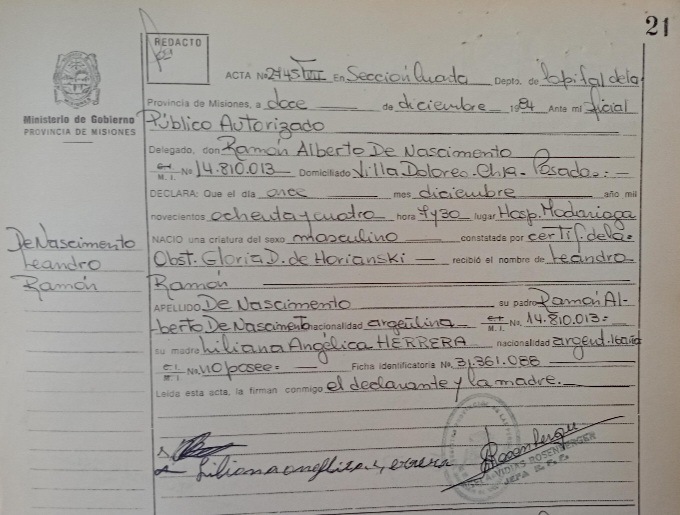 21
REDACTO
ACTA No 2145 TVIII En Sección Cuada Depto. de Capital dela
Ministerio de Gobierno
PROVINCIA DE MISIONES
Provincia de Misiones, a doce de diciembre 1984 Ante mi Oficial
Público Autorizado
Delegado, don Ramón Alberto De Nascimento
M. I. No 14.810.013 Domiciliado Villa Dolores. Chra. Posadas.-
DECLARA: Que el día once mes diciembre año mil
novecientos ochenta y cuatro hora 4y30 lugar Hosp. Madariaga
NACIO una criatura del sexo masculino constatada por certif. dela
Obst. Gloria D. de Horianski recibió el nombre de Leandro
Ramón
De Nascimento
Leandro
Ramón
APELLIDO De Nascimento su padre Ramón Al-
berto De Nascimento nacionalidad argentina M. I. No. 14.810.013-
su madre Liliana Angélica HERRERA nacionalidad argent.
No. no posee.- Ficha identificatoria No. 31.361.088
Leída esta acta, la firman conmigo el declarante y la madre.
ROSENBERGER
JEFA